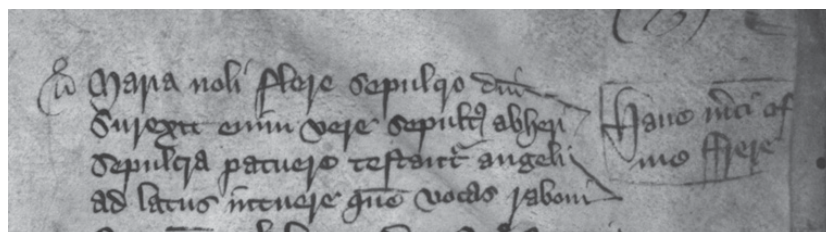 Maria noli fflere sepulcro dni
Surexit enim vere sepult9 abheri
Sepulcra patuere testant angeli
ad latus intuere que vocas raboni
Hanc
mo ffrere